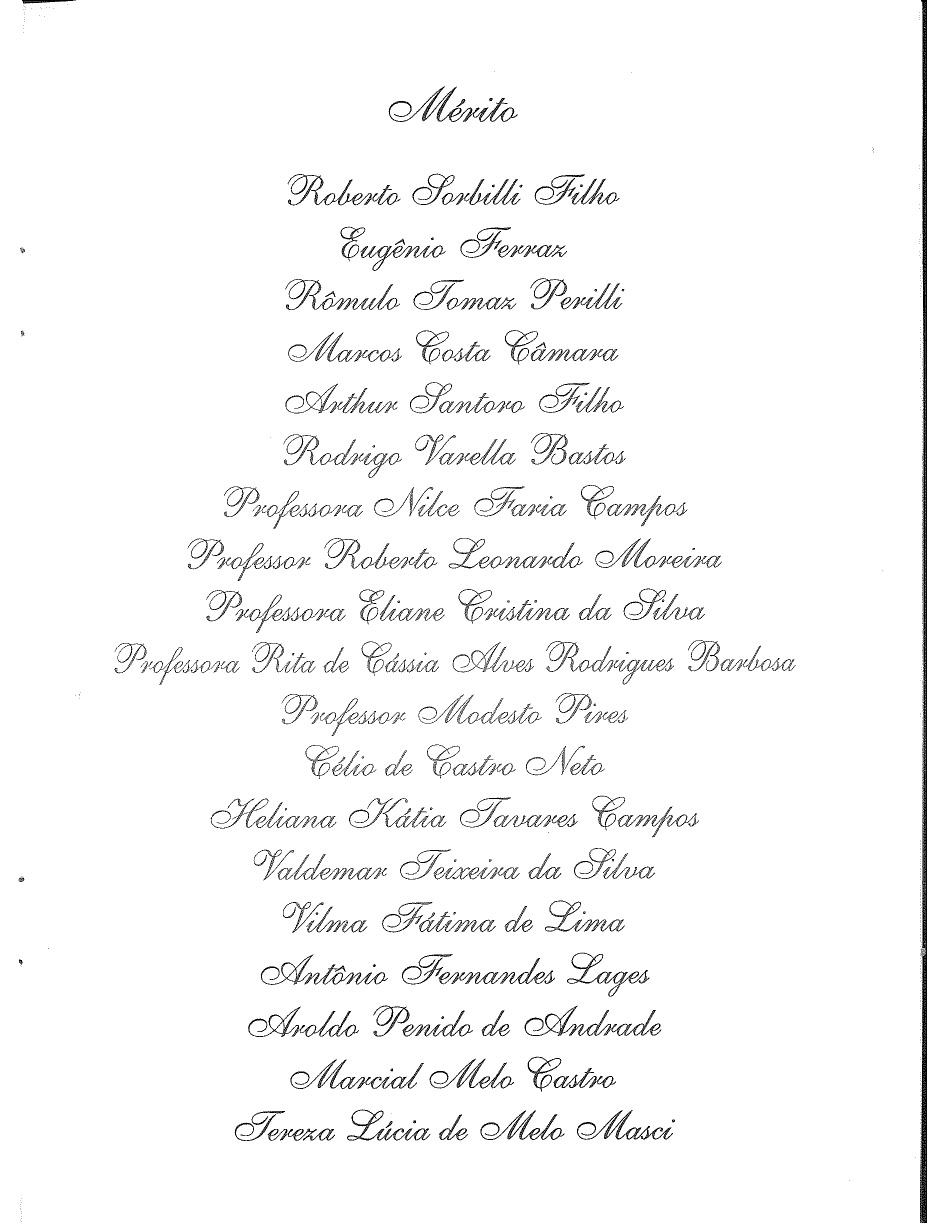 Mérito
Roberto Sorbilli Filho
Eugênio Ferraz
Rômulo Tomaz Perilli
Marcos Costa Câmara
Arthur Santoro Filho
Rodrigo Varella Bastos
Professora Nilce Faria Campos
Professor Roberto Leonardo Moreira
Professora Eliane Cristina da Silva
Professora Rita de Cássia Alves Rodrigues Barbosa
Professor Modesto Pires
Célio de Castro Neto
Heliana Kátia Tavares Campos
Valdemar Teixeira da Silva
Vilma Fátima de Lima
Antônio Fernandes Lages
Aroldo Penido de Andrade
Marcial Melo Castro
Tereza Lúcia de Melo Masci